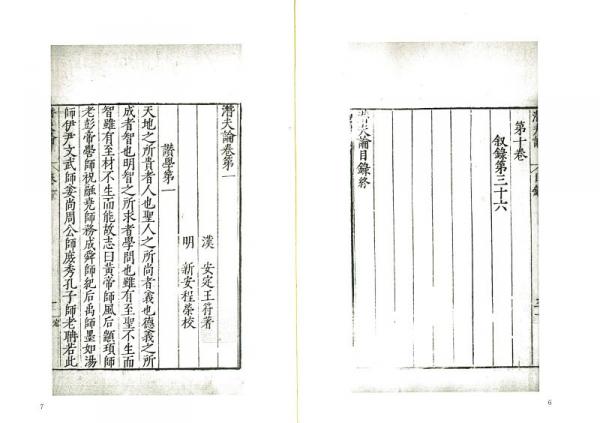 潛夫論 目錄
第十卷
叙錄第三十六
潛夫論目錄終
6
潛夫論卷第一
漢 安定王符著
明 新安程榮校
讃學第一
天地之所貴者人也聖人之所尚者義也德義之所
成者智也明智之所求者學問也雖有至聖不生而
智雖有至材不生而能故志曰黃帝師風后顓頊師
老彭帝嚳師祝融堯師務成舜師紀后禹師墨如湯
師伊尹文武師姜尚周公師庻秀孔子師老聃若此
7